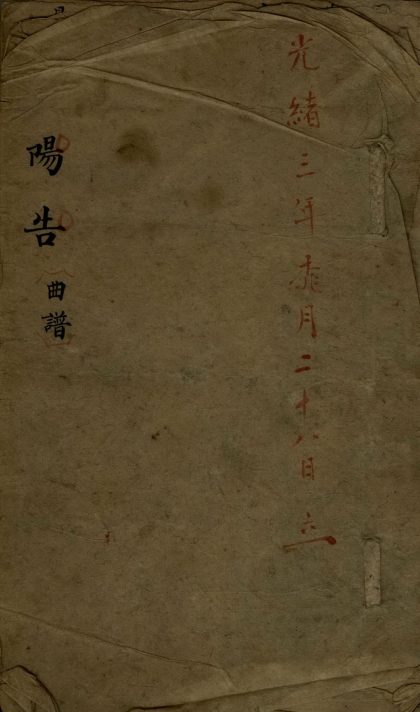 光緒三年桃月二十八日 立
陽告
曲譜